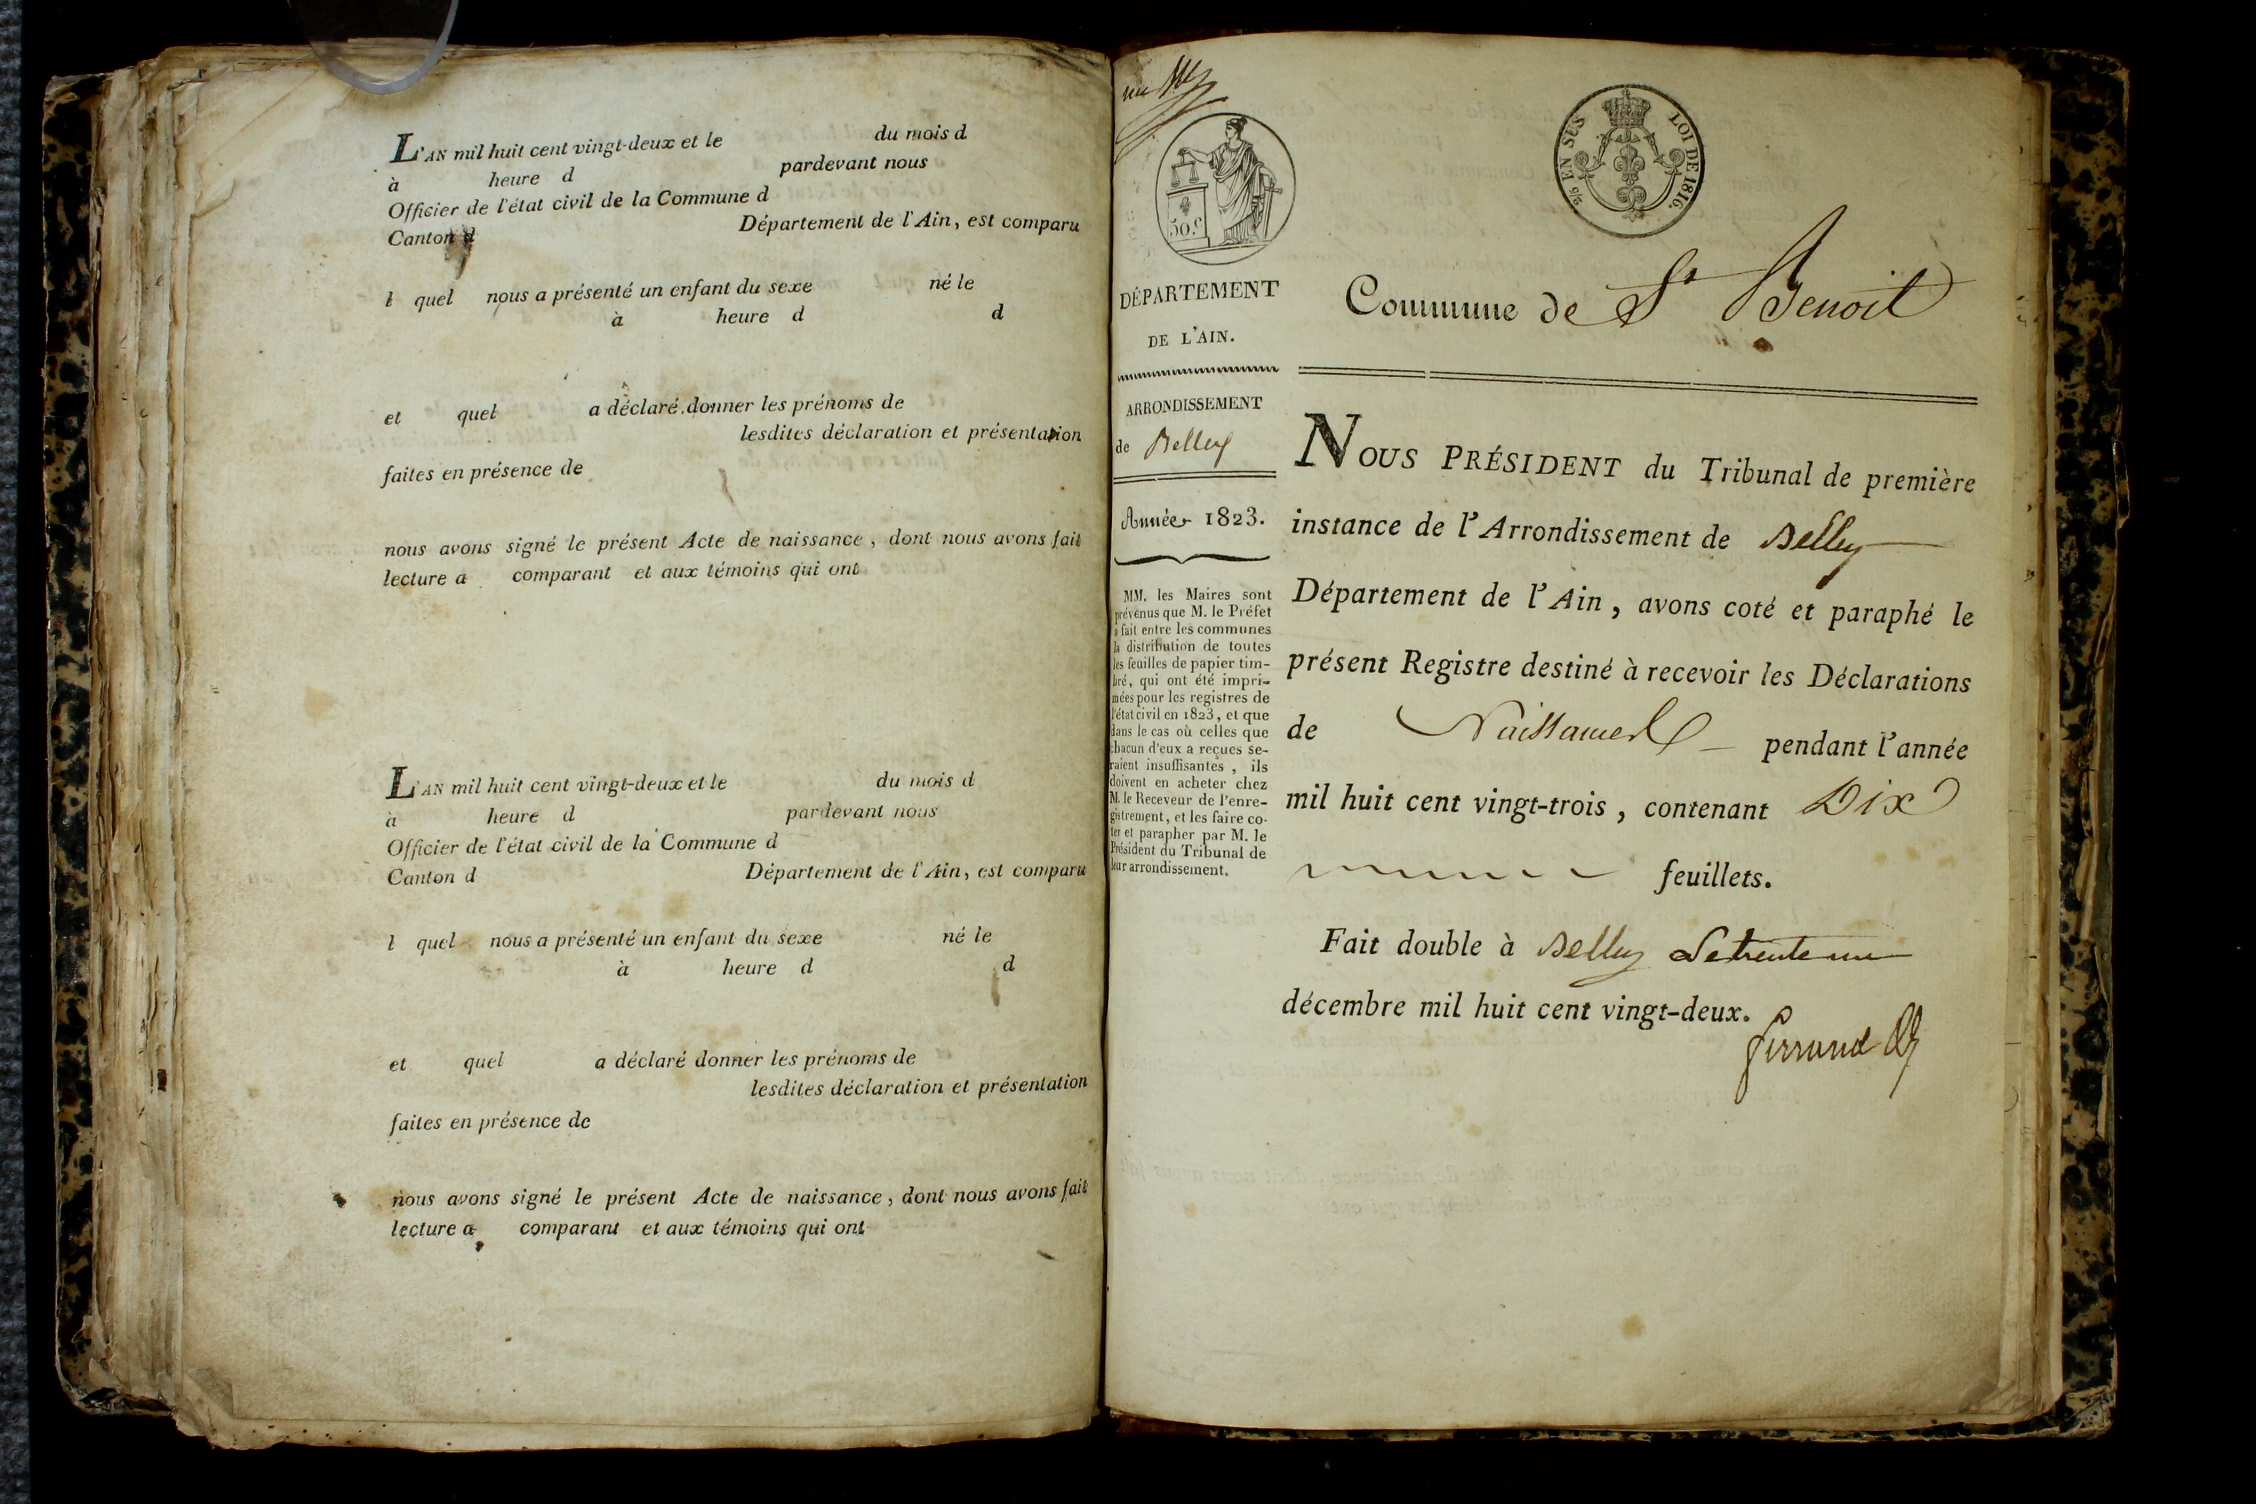 L'AN mil huit cent vingt-deux et le du mois d
à heure d pardevant nous
Officier de l'état civil de la Commune d
Canton d Département de l'Ain, est comparu
l quel nous a présenté un enfant du sexe né le
à heure d d
et quel a déclaré donner les prénoms de
lesdites déclaration et présentation
faites en présence de
nous avons signé le présent Acte de naissance, dont nous avons fait
lecture a comparant et aux témoins qui ont
L'AN mil huit cent vingt-deux et le du mois d
à heure d pardevant nous
Officier de l'état civil de la Commune d
Canton d Département de l'Ain, est comparu
l quel nous a présenté un enfant du sexe né le
à heure d d
et quel a déclaré donner les prénoms de
lesdites déclaration et présentation
faites en présence de
nous avons signé le présent Acte de naissance, dont nous avons fait
lecture a comparant et aux témoins qui ont
50.c
DÉPARTEMENT
DE L'AIN.
ARRONDISSEMENT
de Belley
Année 1823.
MM. les Maires sont
prévenus que M. le Préfet
a fait entre les communes
la distribution de toutes
les feuilles de papier tim-
bré, qui ont été impri-
mées pour les registres de
l'état civil en 1823, et que
dans le cas où celles que
chacun d'eux a reçues se-
raient insuffisantes, ils
doivent en acheter chez
M. le Receveur de l'enre-
gistrement, et les faire co-
ter et parapher par M. le
Président du Tribunal de
leur arrondissement.
EN SUS LOI DE 1816.
Commune de St Benoit
NOUS PRÉSIDENT du Tribunal de première
instance de l'Arrondissement de Belley
Département de l'Ain, avons coté et paraphé le
présent Registre destiné à recevoir les Déclarations
de Naissances pendant l'année
mil huit cent vingt-trois, contenant Dix
feuillets.
Fait double à Belley Le trente un
décembre mil huit cent vingt-deux.